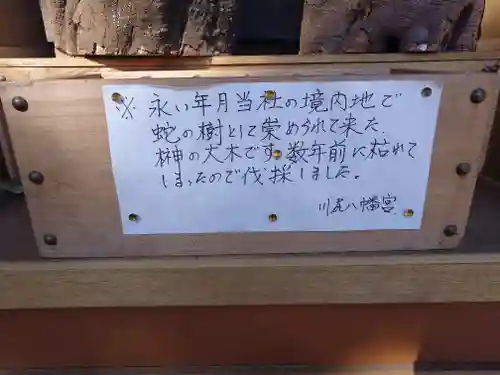 ※永い年月当社の境内地で
蛇の樹として崇められて来た
榊の大木です。数年前に枯れて
しまったので伐採しました。
川尻八幡宮